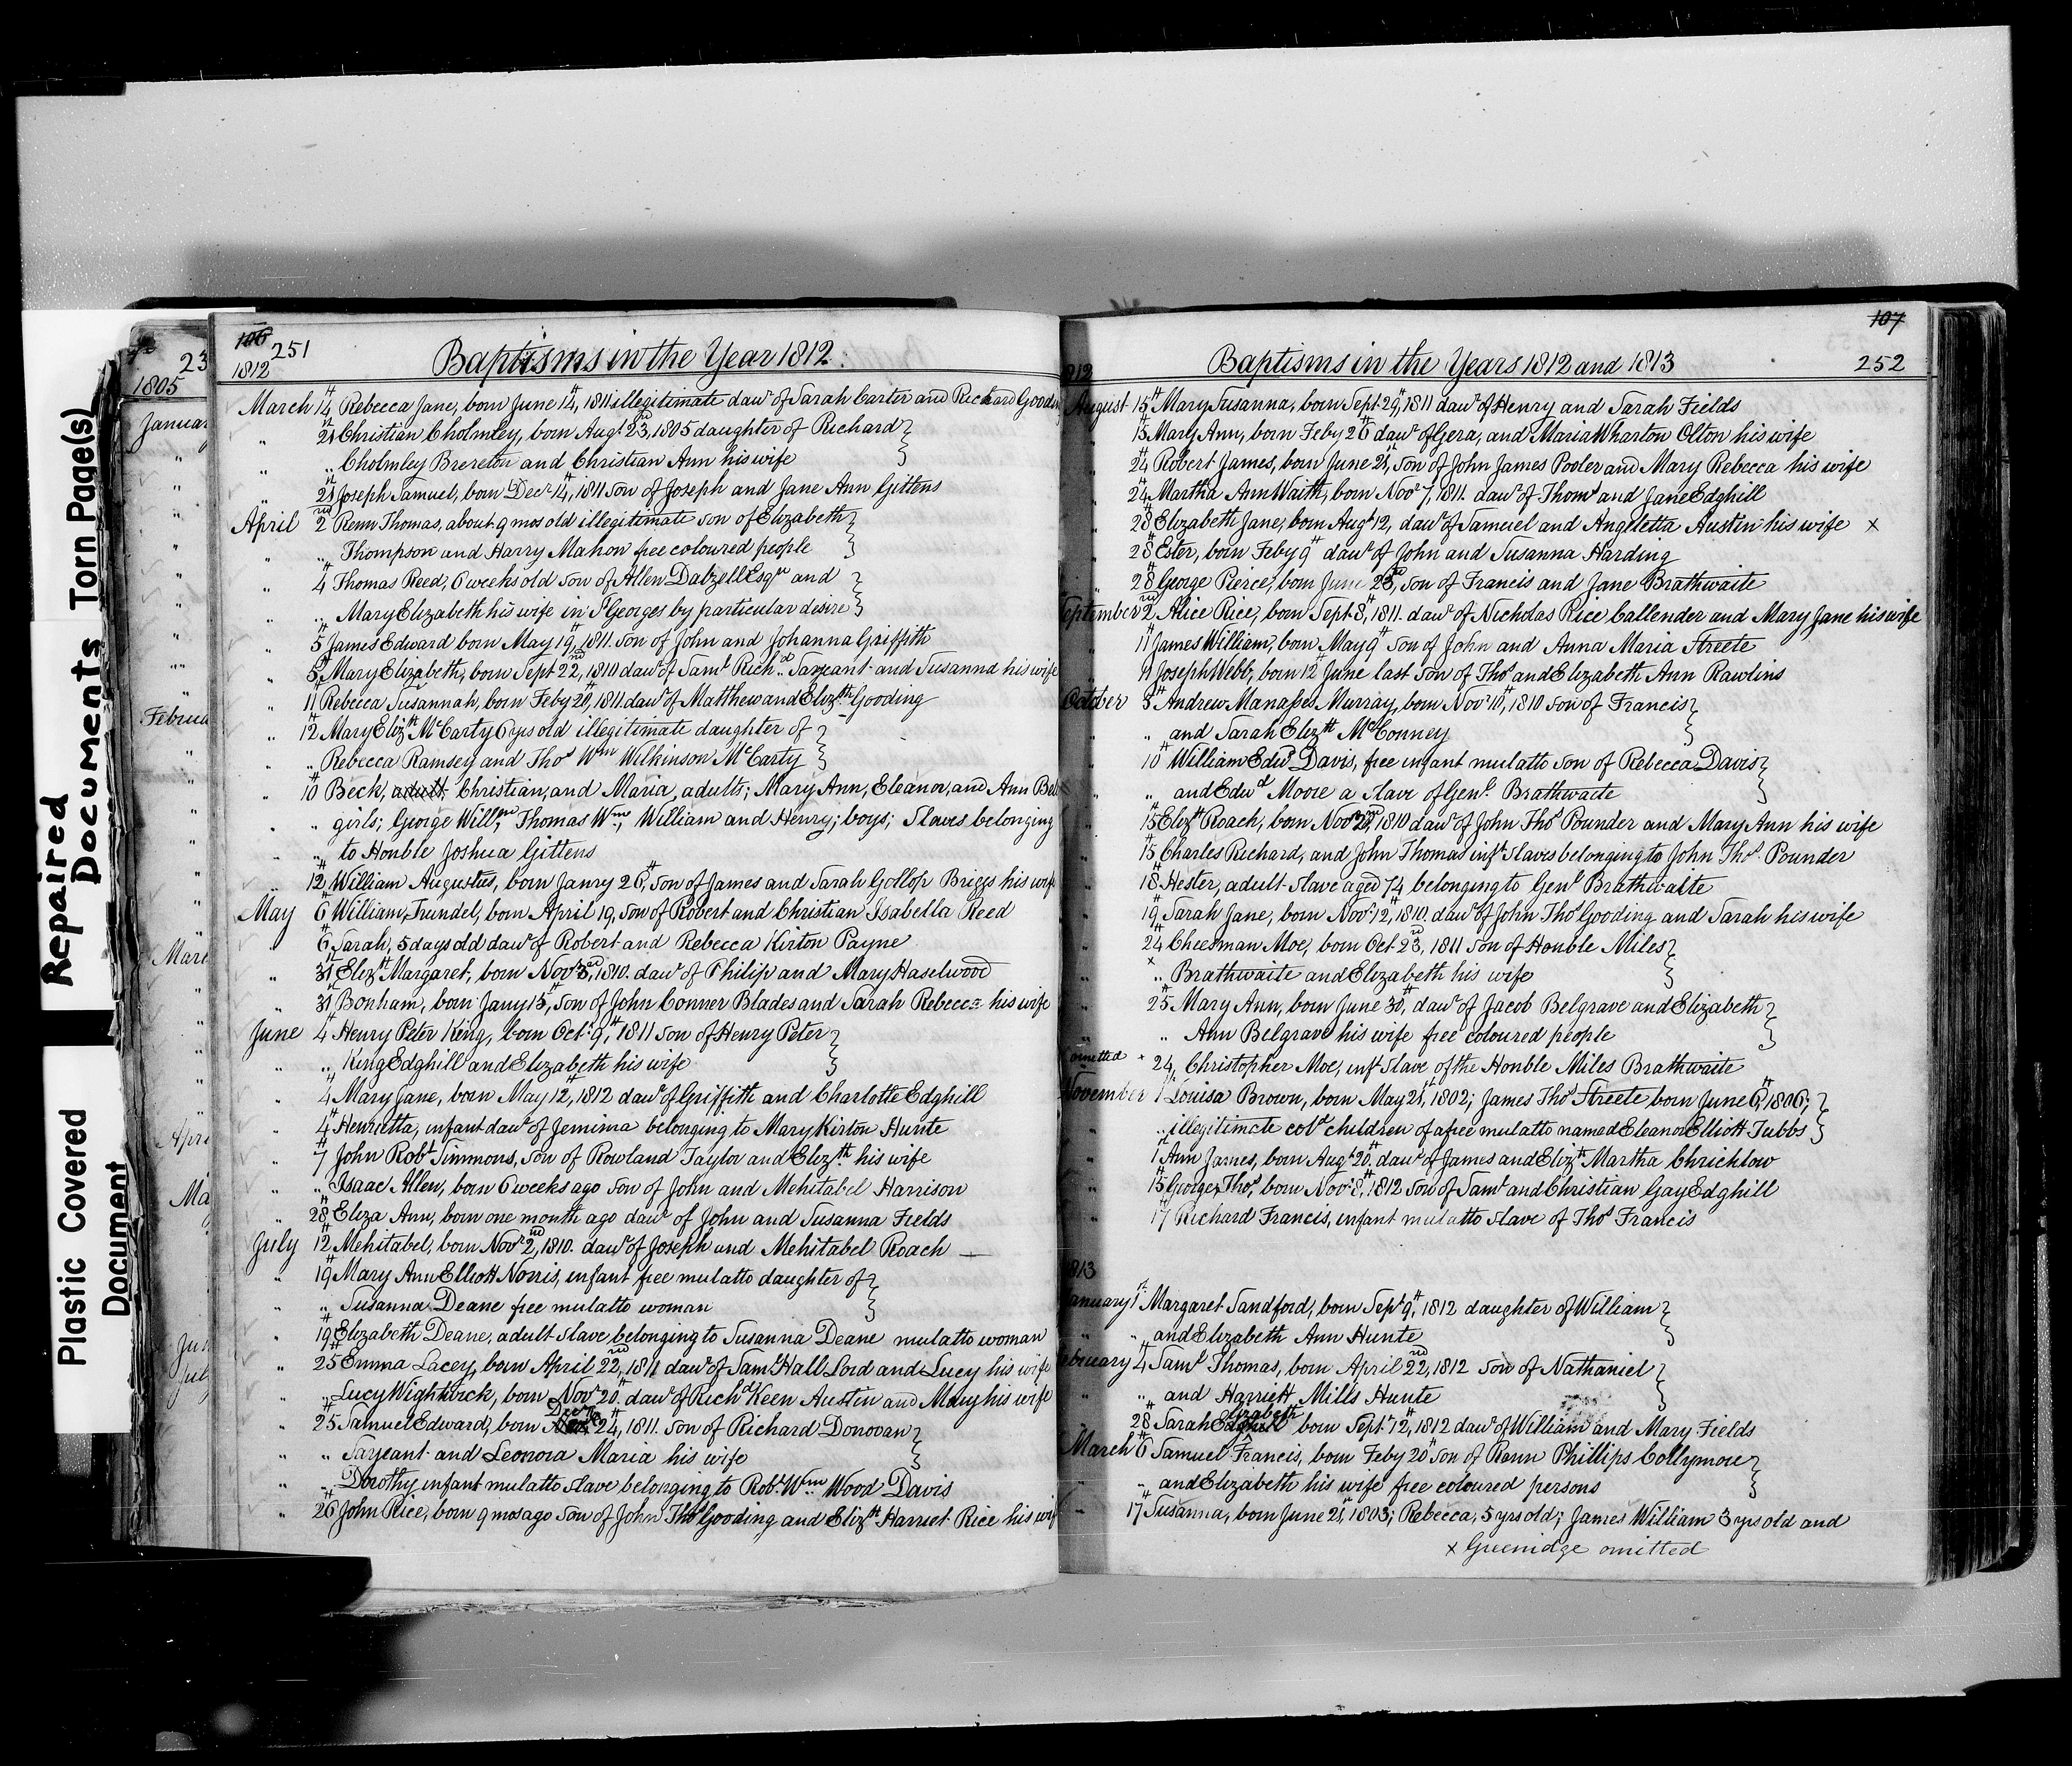 Repaired
Documents Torn Page(s)
Plastic Covered
Document
23
1805
Januar
Februa
Marc
Apri
Ma
Jun
Jul
106
251
1812
Baptisms in the Year 1812.
March 14th Rebecca Jane, born June 14th, 1811 illegitimate dawr of Sarah Carter and Richard Goodin
" 21st Christian Cholmley, born Augt 23rd, 1805 daughter of Richard }
" " Cholmley Brereton and Christian Ann his wife }
" 21st Joseph Samuel, born Decr 14th, 1811 son of Joseph and Jane Ann Gittens
April 2nd Renn Thomas, about 9 mos old illegitimate son of Elizabeth }
" " Thompson and Harry Mahon free coloured people }
" 4th Thomas Reed, 6 weeks old son of Allen Dalzell Esqre and }
" " Mary Elizabeth his wife in St Georges by particular desire }
" 5th James Edward born May 19th, 1811. son of John and Johanna Griffith
" 5th Mary Elizabeth, born Sept 22nd, 1810 dawr of Saml Richd Sarjeant and Susanna his wife
" 11th Rebecca Susannah, born Feby 20th, 1811. dawr of Matthew and Elizth Gooding
" 12th Mary Elizth McCarty 6 yrs old illegitimate daughter of }
" " Rebecca Ramsey and Thos Wm Wilkinson McCarty }
" 10th Beck, adult, Christian, and Maria, adults; Mary Ann, Eleanor, and Ann Bel
" " girls; George Willm, Thomas Wm, William and Henry; boys; Slaves belonging
" " to Honble Joshua Gittens
" 12th William Augustus, born Janry 26th, son of James and Sarah Gollop Briggs his wife
May 6th William Trundel, born April 19, son of Robert and Christian Isabella Reed
6th Sarah, 5 days old dawr of Robert and Rebecca Kirton Payne
" 31st Elizth Margaret, born Novr 3rd, 1810. dawr of Philip and Mary Haselwood
" 31st Bonham, born Jany 15th, son of John Conner Blades and Sarah Rebecca his wife
June 4th Henry Peter King, born Octr 9th, 1811 son of Henry Peter }
" " King Edghill and Elizabeth his wife }
" 4th Mary Jane, born May 12th, 1812 dawr of Griffith and Charlotte Edghill
" 4th Henrietta, infant dawr of Jemima belonging to Mary Kirton Hunte
" 7th John Robt Simmons, son of Rowland Taylor and Elizth his wife
" " Isaac Allen, born 6 weeks ago son of John and Mehitabel Harrison
" 28th Eliza Ann, born one month ago dawr of John and Susanna Fields
July 12th Mehitabel, born Novr 2nd, 1810. dawr of Joseph and Mehitabel Roach
" 19th Mary Ann Elliott Norris, infant free mulatto daughter of }
" " Susanna Deane free mulatto woman }
" 19th Elizabeth Deane, adult slave belonging to Susanna Deane mulatto woman
" 25th Emma Lacey, born April 22nd, 1811 dawr of Saml Hall Lord and Lucy his wife
" " Lucy Wightwick, born Novr 20th. dawr of Richd Keen Austin and Mary his wife
" 25th Samuel Edward, born Decr 24th, 1811. son of Richard Donovan }
" " Sarjeant and Leonora Maria his wife }
" " Dorothy infant mulatto slave belonging to Robt Wm Wood Davis
" 26th John Rice, born 9 mos ago son of John Thos Gooding and Elizth Harriet Rice his wife
107
252
812
Baptisms in the Years 1812 and 1813
August 15th Mary Susanna, born Sept 29th, 1811 dawr of Henry and Sarah Fields
" 15th Mary Ann, born Feby 26th dawr of Gera, and Maria Wharton Olton his wife
" 24th Robert James, born June 21st, son of John James Pooler and Mary Rebecca his wife
" 24th Martha Ann Waith, born Novr 7, 1811. dawr of Thoms and Jane Edghill
" 28th Elizabeth Jane, born Augt 12, dawr of Samuel and Angeletta Austin his wife x
" 28th Ester, born Feby 9th dawr of John and Susanna Harding
" 28th George Pierce, born June 23rd, son of Francis and Jane Brathwaite
September 2nd Alice Rice, born Sept 8th, 1811. dawr of Nicholas Rice Callender and Mary Jane his wife
11th James William, born May 9th son of John and Anna Maria Streete
" Joseph Webb, born 12th June last son of Thos and Elizabeth Ann Rawlins
October 5th Andrew Manasses Murray, born Novr 10th, 1810 son of Francis }
" " and Sarah Elizth McConney }
" 10th William Edwd Davis, free infant mulatto son of Rebecca Davis }
" " and Edwd Moore a slave of Genl Brathwaite }
" 15th Elizth Roach, born Novr 22nd, 1810 dawr of John Thos Pounder and Mary Ann his wife
" 15th Charles Richard, and John Thomas inft slaves belonging to John Thos Pounder
" 18th Hester, adult slave aged 74 belonging to Genl Brathwaite
" 19th Sarah Jane, born Novr 12th, 1810. dawr of John Thos Gooding and Sarah his wife
" 24th Cheesman Moe, born Oct 23rd, 1811 son of Honble Miles }
" x " Brathwaite and Elizabeth his wife }
" 25th Mary Ann, born June 30th, dawr of Jacob Belgrave and Elizabeth }
" " Ann Belgrave his wife free coloured people }
omitted x 24th, Christopher Moe, inft slave of the Honble Miles Brathwaite
November 1st Louisa Brown, born May 21st, 1802; James Thos Streete born June 6th, 1806; }
" " illegitimate cold children of a free mulatto named Eleanor Elliott Tubbs }
" 1st Ann James, born Augt 20th. dawr of James and Elizth Martha Chrichlow
" 15th George Thos, born Novr 8th, 1812 son of Saml and Christian Gay Edghill
" 17th Richard Francis, infant mulatto slave of Thos Francis
1813
January 1st Margaret Sandford, born Sept 9th, 1812 daughter of William }
" " and Elizabeth Ann Hunte }
February 4th Saml Thomas, born April 22nd, 1812 son of Nathaniel }
" " and Harriett Mills Hunte }
" 28th Sarah Elizabeth born Sept 12th, 1812 dawr of William and Mary Fields
March 6th Samuel Francis, born Feby 20th son of Renn Phillips Collymore }
" " and Elizabeth his wife free coloured persons }
" 17th Susanna, born June 21st, 1803; Rebecca, 5 yrs old; James William 3 yrs old and
x Greenidge omitted